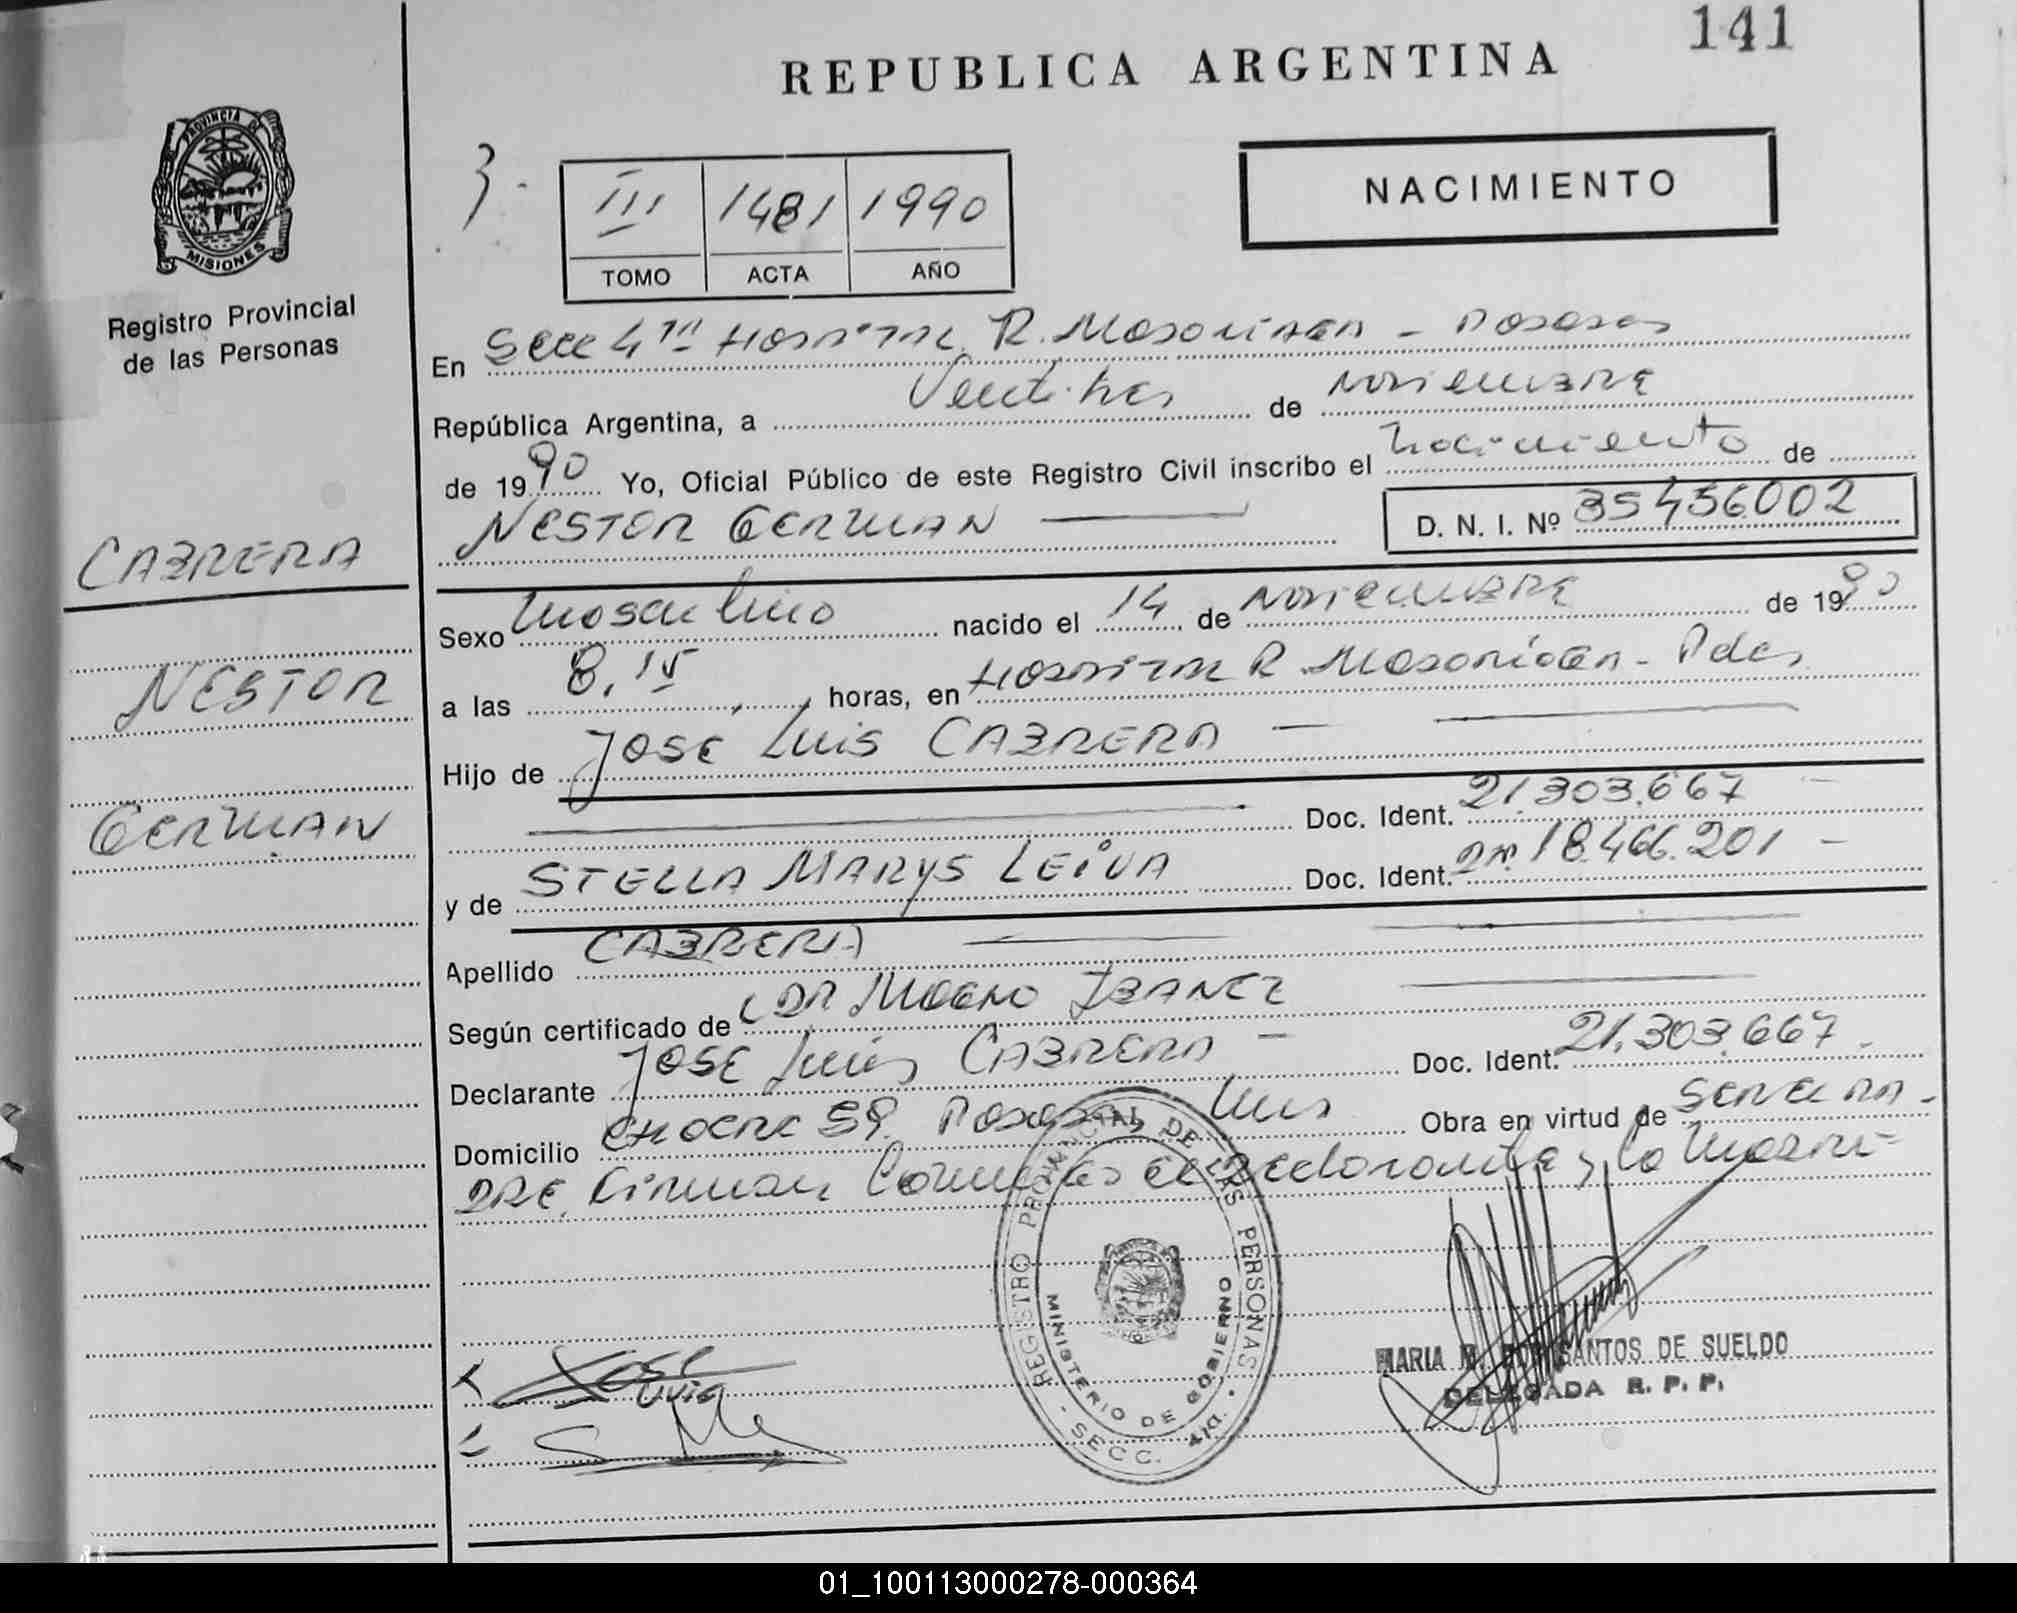 141
REPUBLICA ARGENTINA
PROVINCIA DE
MISIONES
Registro Provincial
de las Personas
3.
III 1481 1990
TOMO ACTA AÑO
NACIMIENTO
En Secc 4ta HOSPITAL R. Madariaga - Posadas
República Argentina, a Veintitres de NOVIEMBRE
de 1990 Yo, Oficial Público de este Registro Civil inscribo el nacimiento de
NESTOR GERMAN D. N. I. Nº 35456002
CABRERA
NESTOR
GERMAN
Sexo masculino nacido el 14 de NOVIEMBRE de 1990
a las 8,15 horas, en HOSPITAL R. Madariaga - Pdas,
Hijo de JOSE LUIS CABRERA
Doc. Ident. 21.303.667
y de STELLA MARYS LEIVA Doc. Ident. 18.466.201
Apellido CABRERA
Según certificado de DR IBAÑEZ
Declarante JOSE Luis CABRERA Doc. Ident. 21.303.667
Domicilio 59 Posadas Mnes Obra en virtud de
DRE. Firman el Declarante y la
REGISTRO PROVINCIAL DE LAS PERSONAS
MINISTERIO DE GOBIERNO
SECC. 4ta.
JOSE
Luis
MARIA SANTOS DE SUELDO
DELEGADA R. P. P.
01_100113000278-000364